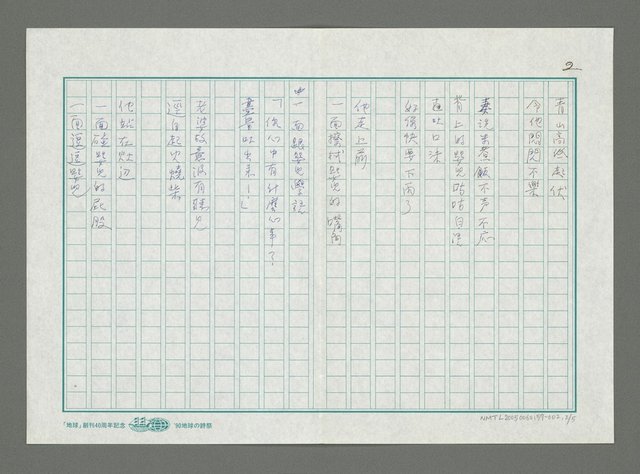 2
青山高低起伏
令他悶悶不樂
妻洗米煮飯不声不応
背上的嬰兒咕咕自語
直吐口沫
好像快要下雨了
他走上前
一面擦拭嬰兒的嘴角
一面跟嬰兒學話
「你心中有什麼心事？
盡量吐出來！」
老婆故意沒有聽見
逕自起火燒柴
他站在灶边
一面碰嬰兒的屁股
一面逗逗嬰兒
「地球」創刊40周年記念 '90地球の詩祭
NMTL20050030159-002, 2/5